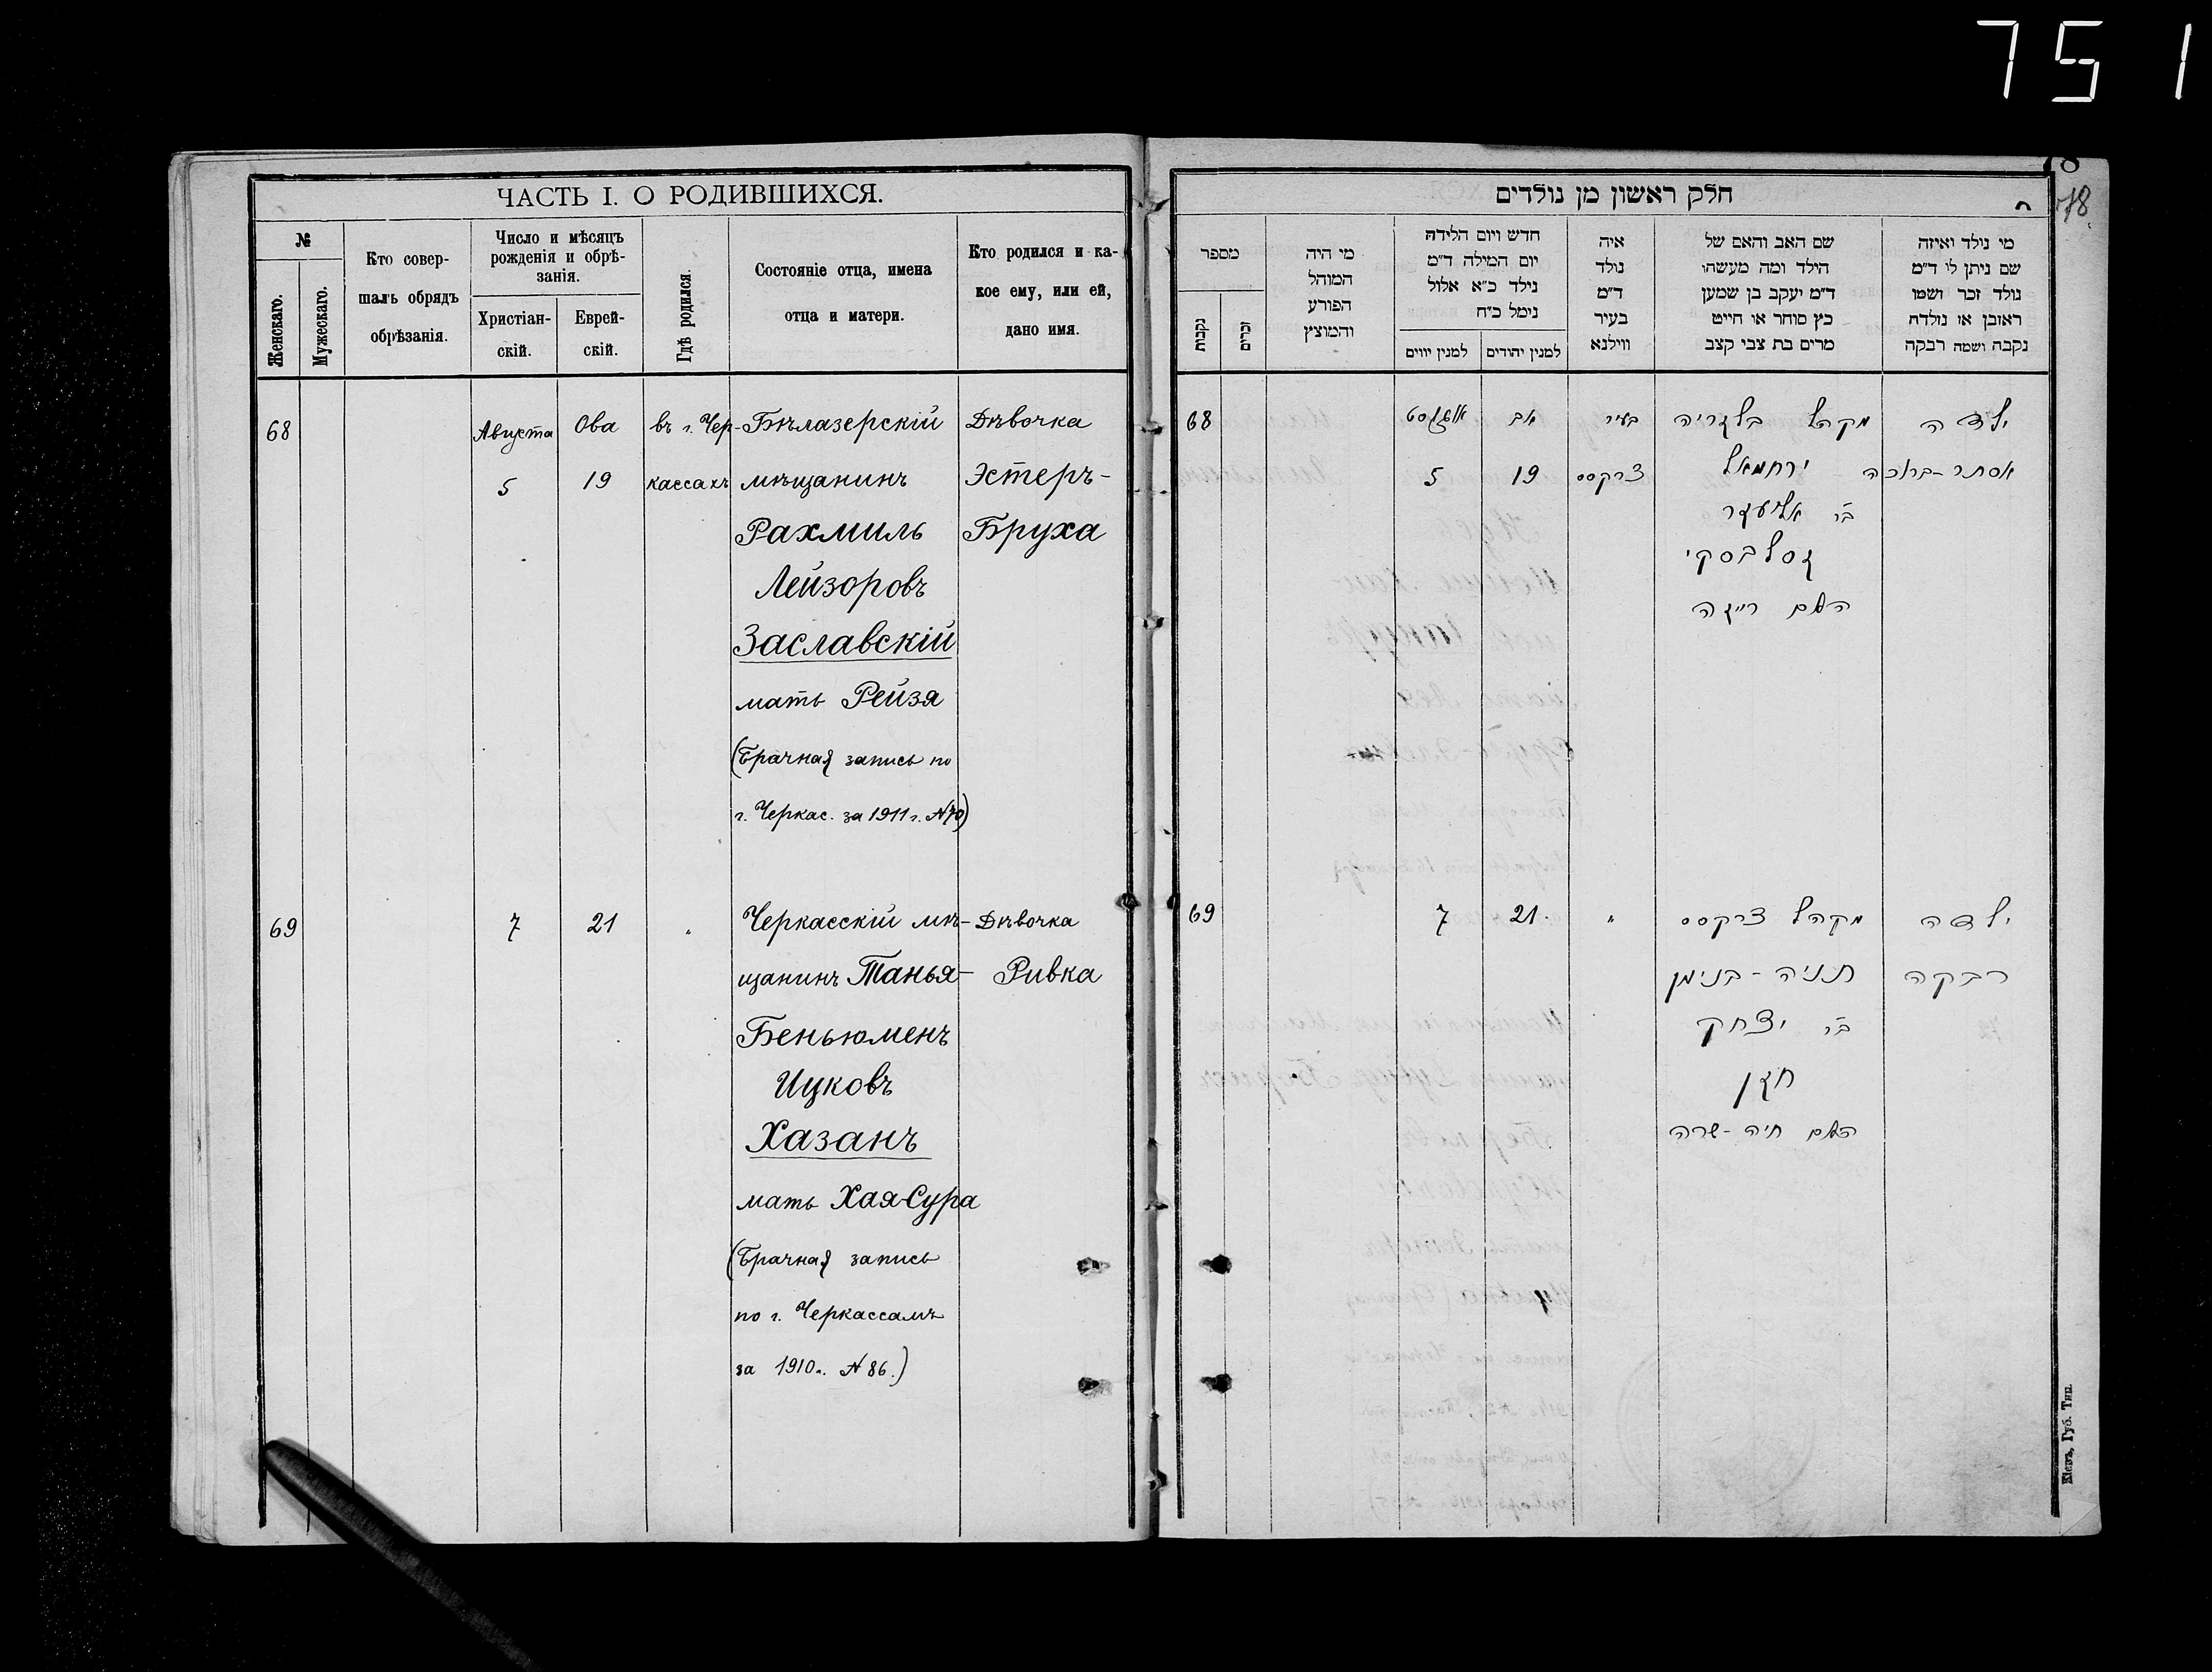 751
ЧАСТЬ I. О РОДИВШИХСЯ.
№
Женскаго.
Мужескаго.
Кто совер-
шалъ обрядъ
обрѣзанія.
Число и мѣсяцъ
рожденія и обрѣ-
занія.
Христіан-
скій.
Еврей-
скій.
Гдѣ родился.
Состояніе отца, имена
отца и матери.
Кто родился и ка-
кое ему, или ей,
дано имя.
68 Августа Ова въ г. Чер- Бѣлазерскій Дѣвочка
5 19 кассахъ мѣщанинъ Эстеръ-
Рахмиль Бруха
Лейзоровъ
Заславскій
мать Рейзя
(Брачная запись по
г. Черкас. за 1911 г. №70)
69 7 21 „ Черкасскій мѣ- Дѣвочка
щанинъ Танья- Ривка
Беньюменъ
Ицковъ
Хазанъ
мать Хая-Сура
(Брачная запись
по г. Черкассамъ
за 1910 г. №86.)
חלק ראשון מן נולדים
78
מספר
נקבות
זכרים
מי היה
המוהל
הפורע
והמוצץ
חדש ויום הלידה
יום המילה ד"מ
נילד כ"א אלול
נימל כ"ח
למנין יווים
למנין יהודים
איה
נולד
ד"מ
בעיר
ווילנא
שם האב והאם של
הילד ומה מעשהו
ד"מ יעקב בן שמען
כץ סוחר או חייט
מרים בת צבי קצב
מי נולד ואיזה
שם ניתן לו ד"מ
נולד זכר ושמו
ראובן או נולדה
נקבה ושמה רבקה
68 אוגוסט אב בעיר מקהל בלזריה ילדה
5 19 צרקסס ירחמאל אסתר-ברוכה
בר אליעזר
זסלבסקי
האם רייזה
69 7 21. „ מקהל צרקסס ילדה
תניה-בנימן רבקה
בר יצחק
חזן
האם חיה-שרה
Кіевъ, Губ. Тип.